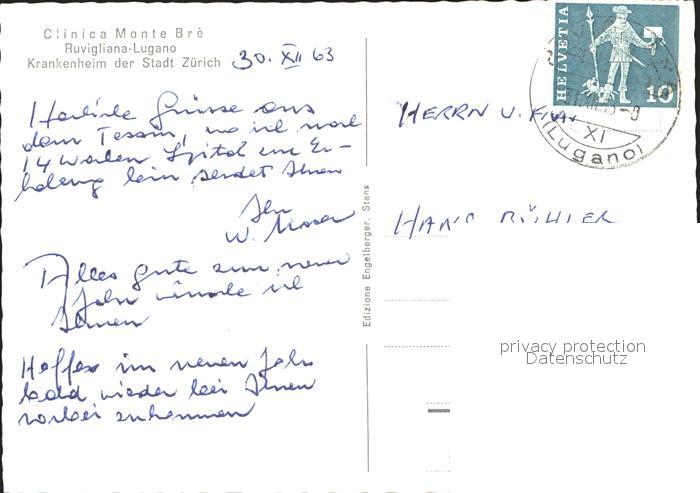 Clinica Monte Brè
Ruvigliana-Lugano
Krankenheim der Stadt Zürich
30. XII 63
Herzliche Grüsse aus
dem Tessin, wo ich nach
14 Wochen Spital zur Er-
holung bin sendet Ihnen
Ihr
W. Moser
Alles gute zum neuen
Jahr wünsche ich
Ihnen
Hoffe im neuen Jahr
bald wieder bei Ihnen
vorbei zukommen
Edizione Engelberger, Stans
HELVETIA
10
XI
(Lugano)
HERRN U. FRAU
HANS
privacy protection
Datenschutz